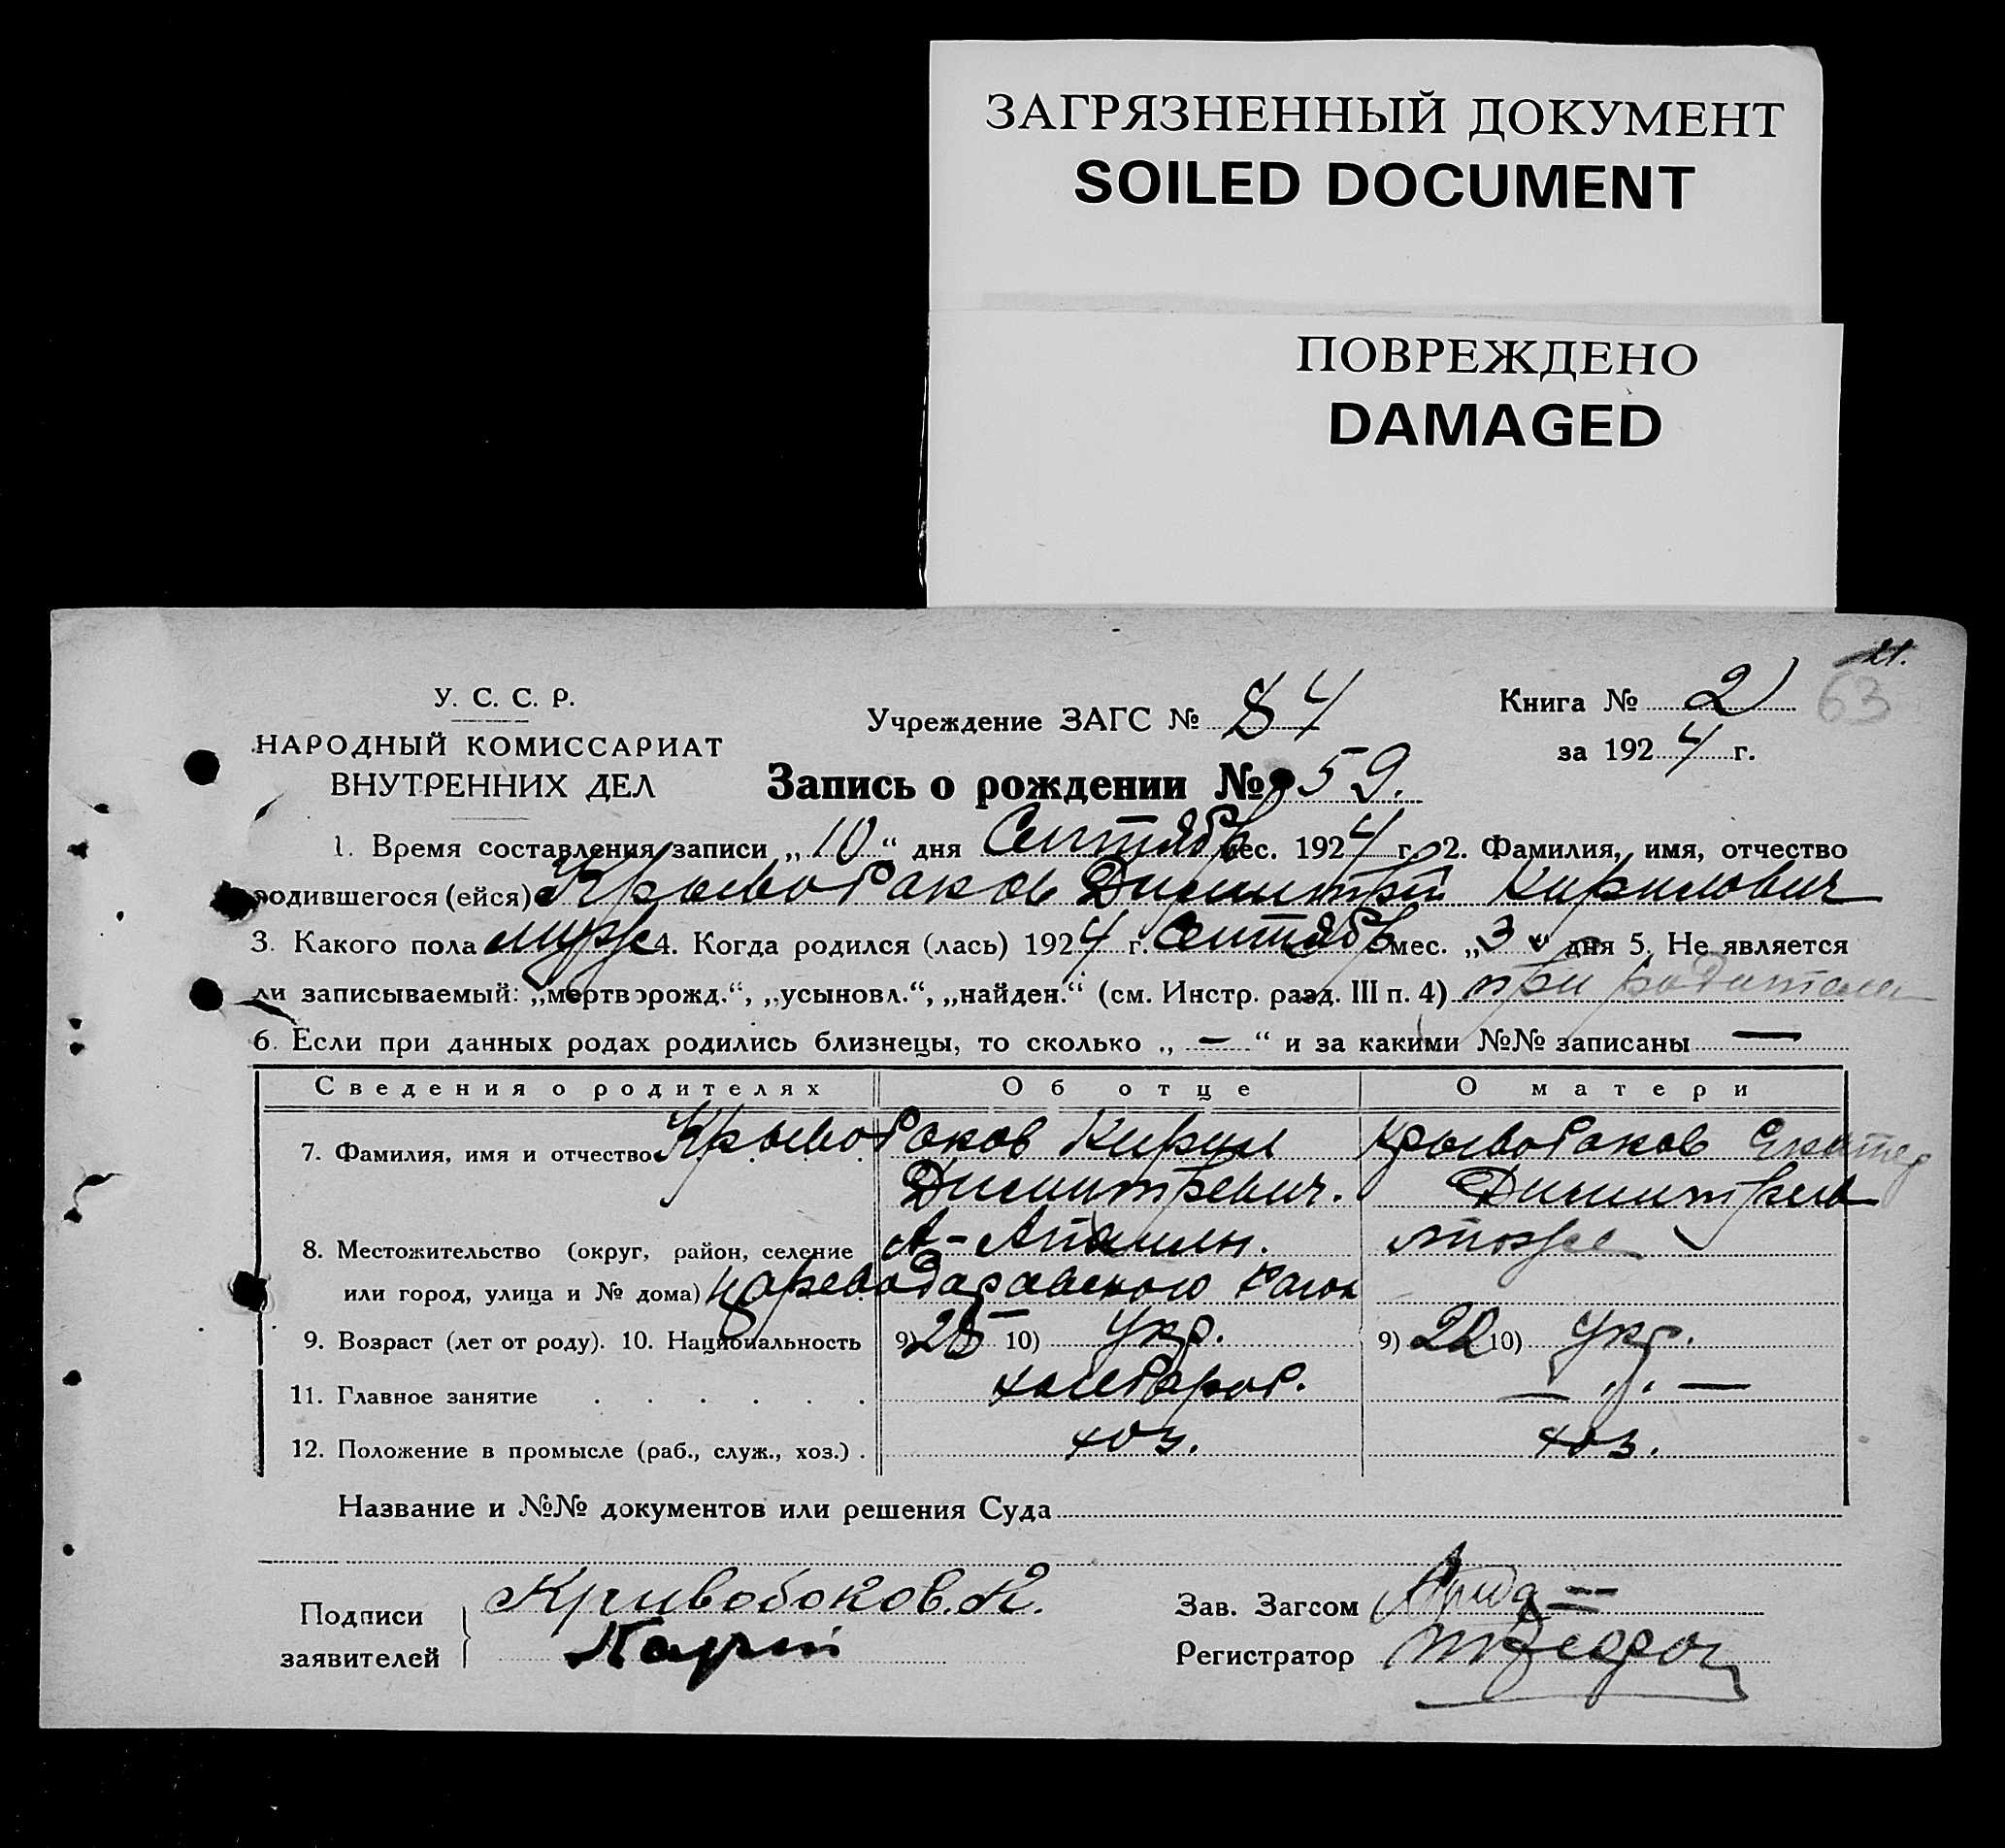 ЗАГРЯЗНЕННЫЙ ДОКУМЕНТ
SOILED DOCUMENT
ПОВРЕЖДЕНО
DAMAGED
21.
63
У. С. С. Р.
НАРОДНЫЙ КОМИССАРИАТ
ВНУТРЕННИХ ДЕЛ
Учреждение ЗАГС № 84
Книга № 2
за 1924 г.
Запись о рождении № 59.
1. Время составления записи „10“ дня Сентябр мес. 1924 г. 2. Фамилия, имя, отчество
родившегося (ейся) Крывобоков Димитрий Кирилович
3. Какого пола муж 4. Когда родился (лась) 1924 г. Сентябр мес. „3“ дня 5. Не является
ли записываемый: „мертворожд.“, „усыновл.“, „найден.“ (см. Инстр. разд. III п. 4) при родителях
6. Если при данных родах родились близнецы, то сколько „—“ и за какими №№ записаны —
Сведения о родителях Об отце О матери
7. Фамилия, имя и отчество Крывобоков Кирил Крывобоков Екатер
Димитревич. Димитрев
8. Местожительство (округ, район, селение тоже
или город, улица и № дома)
9. Возраст (лет от роду). 10. Национальность 9) 25 10) Укр. 9) 22 10) Укр.
11. Главное занятие хлебороб. — „ —
12. Положение в промысле (раб., служ., хоз.) хоз. хоз.
Название и №№ документов или решения Суда
Подписи заявителей Кривобоков. К.
Зав. Загсом
Регистратор